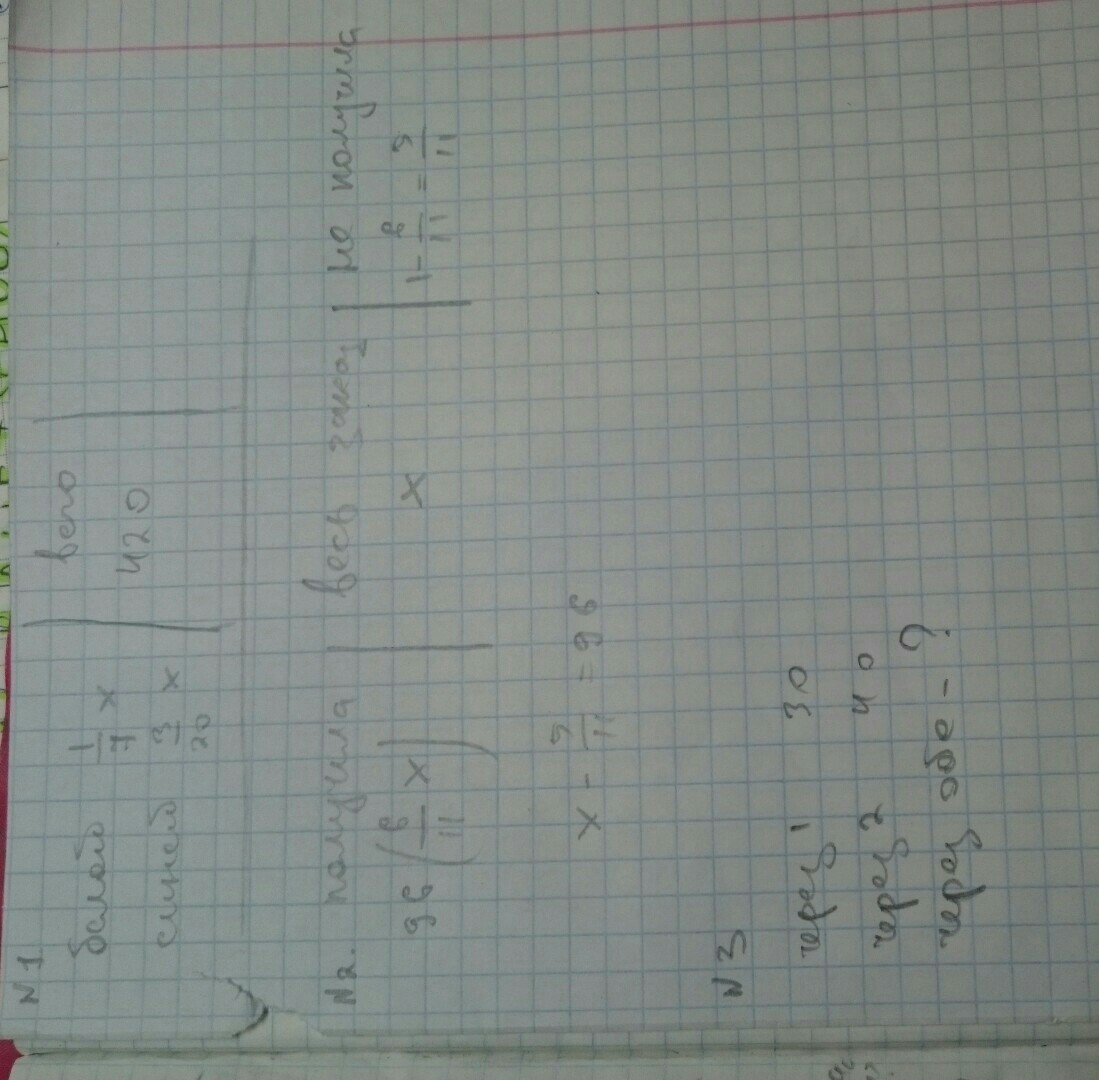 N1
белой 1/7 x | всего |
синей 3/20 x | 420
N2. получила | весь заказ | не получила
96 (6/11 x) | x | 1 - 6/11 = 5/11
x - 5/11 = 96
N3
через 1 30
через 2 40
через обе - ?